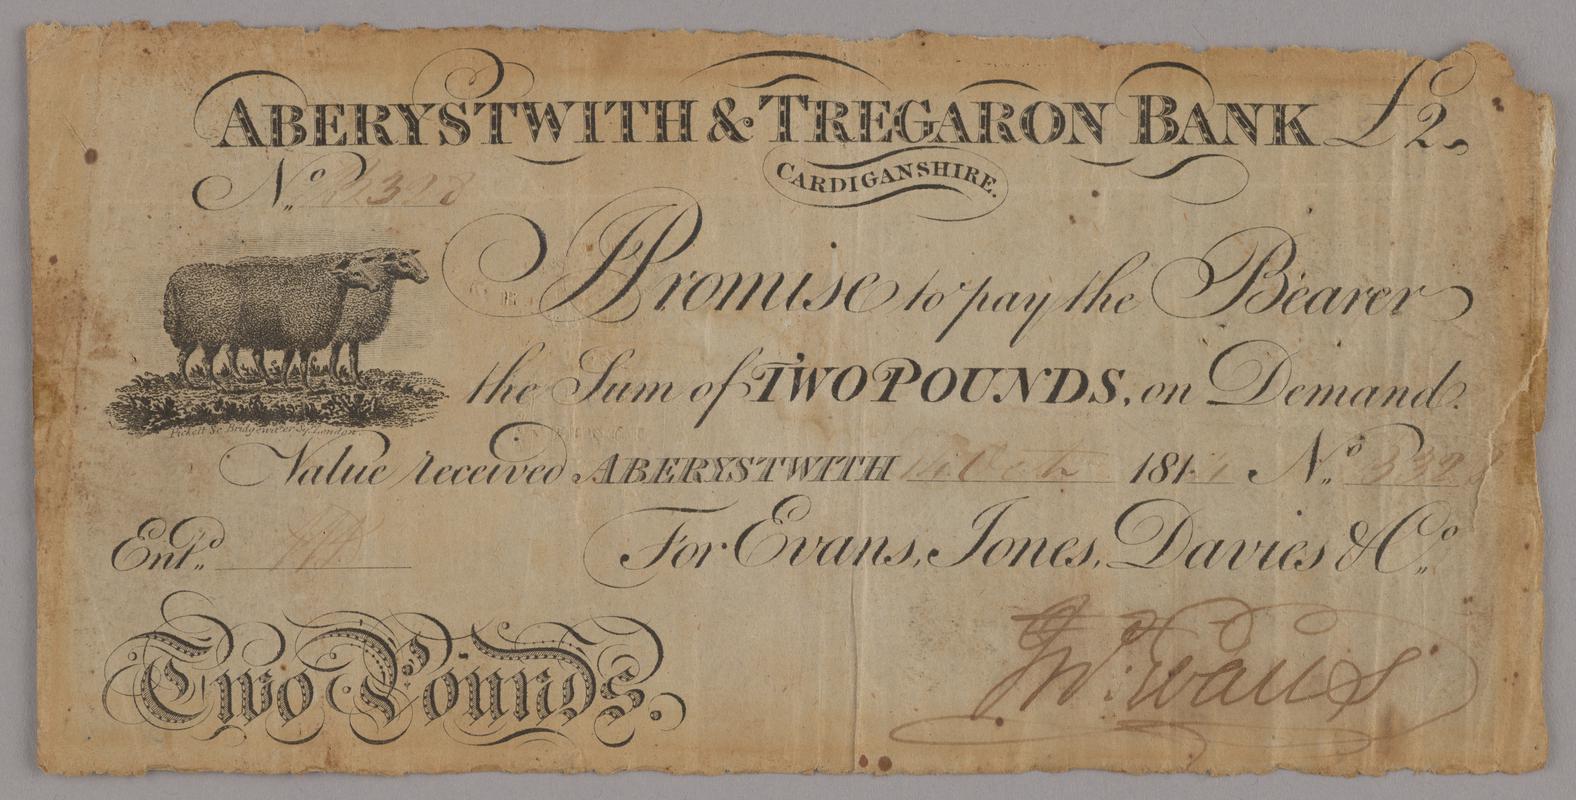 ABERYSTWITH & TREGARON BANK £2.
CARDIGANSHIRE.
No 3328
I Promise to pay the Bearer
the Sum of TWO POUNDS, on Demand.
Pickett Sc. Bridgewater Sq. London.
Value received ABERYSTWITH 14 Octr 181 No 3328
Entd.
For Evans, Jones, Davies & Co.
Two Pounds.
Jno. Evans